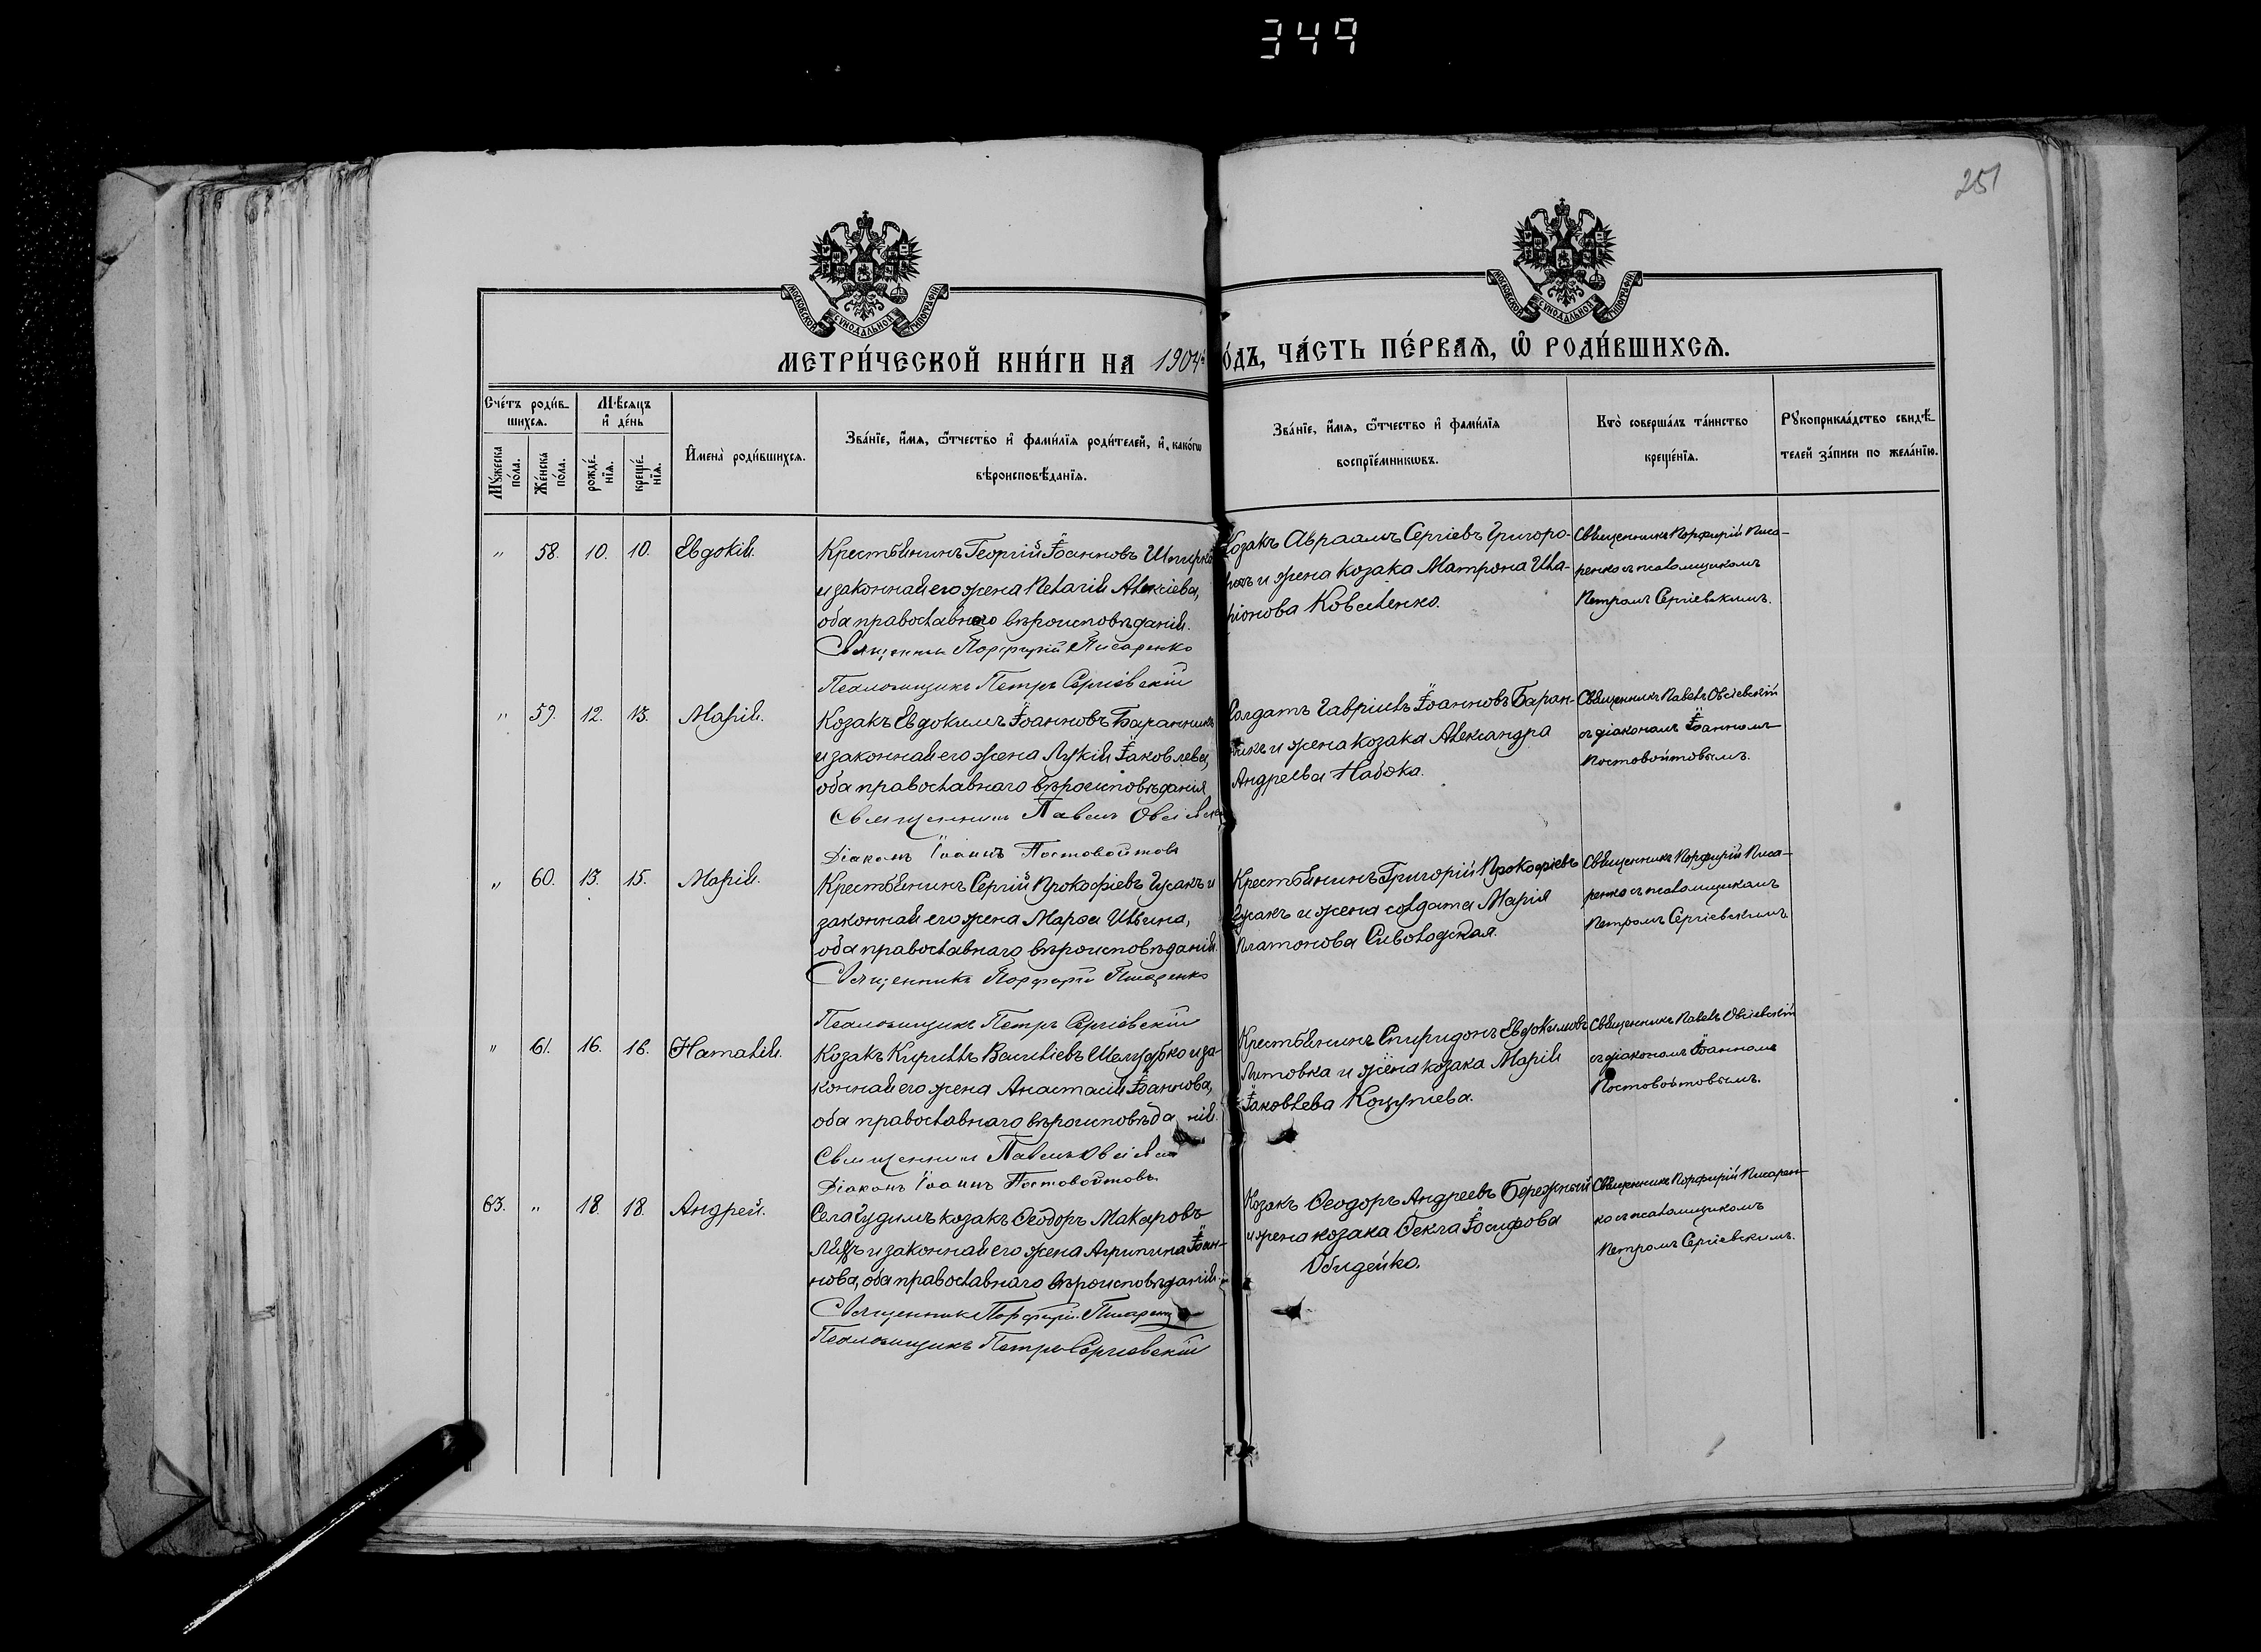 349
251
МОСКОВСКОЙ СѴНОДАЛЬНОЙ ТИПОГРАФІИ
МОСКОВСКОЙ СѴНОДАЛЬНОЙ ТИПОГРАФІИ
МЕТРИ́ЧЕСКОЙ КНИ́ГИ НА 1904 ГО́ДЪ, ЧА́СТЬ ПЕ́РВАѦ, Ѡ҆ РОДИ́ВШИХСѦ.
Сче́тъ роди́в-
шихсѧ.
Мꙋ́жеска по́ла.
Же́нска по́ла.
Мѣ́сѧцъ
и҆ де́нь
рожде́-
нїѧ.
креще́-
нїѧ.
И҆мена̀ роди́вшихсѧ.
Зва́нїе, и҆́мѧ, ѻ҆́тчество и҆ фами́лїѧ роди́телей, и҆ како́гѡ
вѣроисповѣ́данїѧ.
Зва́нїе, и҆́мѧ, ѻ҆́тчество и҆ фами́лїѧ
воспрїе́мникѡвъ.
Кто̀ соверша́лъ та́инство
креще́нїѧ.
Рꙋкоприкла́дство свидѣ́-
телей за́писи по жела́нїю.
" 58. 10. 10. Евдокія.
Крестьянинъ Георгій Іоанновъ
и законная его жена Пелагія Алексіева,
оба православнаго вѣроисповѣданія.
Священникъ Порфирій Писаренко
Псаломщикъ Петръ Сергіевскій
Козакъ Авраамъ Сергіевъ Григоро-
и жена козака Матрона Ила-
ріонова Коваленко.
Священникъ Порфирій Писа-
ренко съ псаломщикомъ
Петромъ Сергіевскимъ.
" 59. 12. 13. Марія.
Козакъ Евдокимъ Іоанновъ Баранникъ
и законная его жена Лукія Іаковлева,
оба православнаго вѣроисповѣданія
Священникъ Павелъ Овсіевскій
Діаконъ Іоаннъ Постовойтовъ
Солдатъ Гавріилъ Іоанновъ Баран-
никъ и жена козака Александра
Андреева Набока.
Священникъ Павелъ Овсіевскій
съ діакономъ Іоанномъ
Постовойтовымъ.
" 60. 13. 15. Марія.
Крестьянинъ Сергій Прокофіевъ Гусакъ и
законная его жена Марѳа Ильина,
оба православнаго вѣроисповѣданія.
Священникъ Порфирій Писаренко
Псаломщикъ Петръ Сергіевскій
Крестьянинъ Григорій Прокофіевъ
Гусакъ и жена солдата Марія
Платонова Сиволодская.
Священникъ Порфирій Писа-
ренко съ псаломщикомъ
Петромъ Сергіевскимъ
" 61. 16. 16. Наталія.
Козакъ Кириллъ Василіевъ Шелудько и за-
конная его жена Анастасія Іоаннова,
оба православнаго вѣроисповѣданія.
Священникъ Павелъ Овсіевскій
Діаконъ Іоаннъ Постовойтовъ
Крестьянинъ Спиридонъ Евдокимовъ
Литовка и жена козака Марія
Іаковлева Коцупіева.
Священникъ Павелъ Овсіевскій
съ діакономъ Іоанномъ
Постовойтовымъ.
63. " 18. 18. Андрей.
Села Гудимъ козакъ Ѳеодоръ Макаровъ
и законная его жена Агрипина Іоан-
нова, оба православнаго вѣроисповѣданія.
Священникъ Порфирій Писаренко
Псаломщикъ Петръ Сергіевскій
Козакъ Ѳеодоръ Андреевъ Бережный
и жена козака Ѳекла Іосифова
Обидейко.
Священникъ Порфирій Писарен-
ко съ псаломщикомъ
Петромъ Сергіевскимъ.